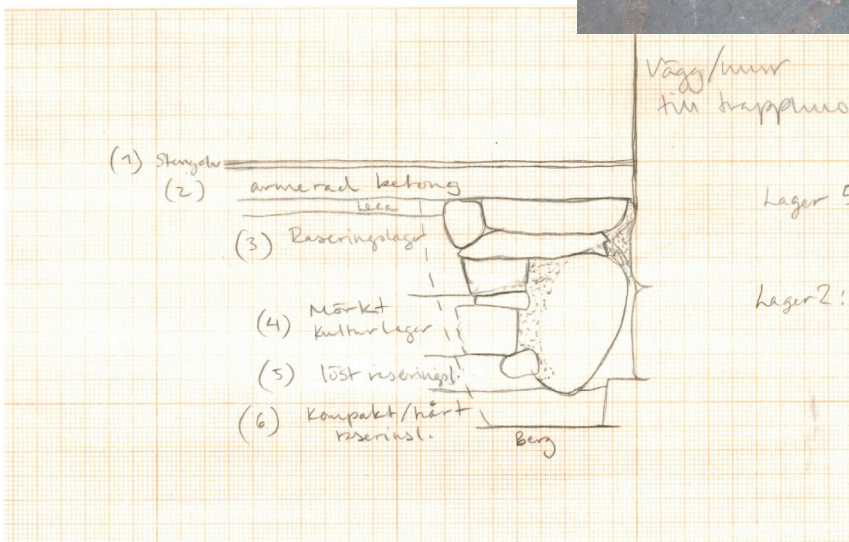 Vägg/mur
till trapphus
(1) Stengolv
(2) armerad betong
Leca
(3) Raseringslager
Lager 5
(4) Mörkt
kulturlager
Lager 2:
(5) löst raseringsl.
(6) Kompakt/hårt
raserinsl.
Berg